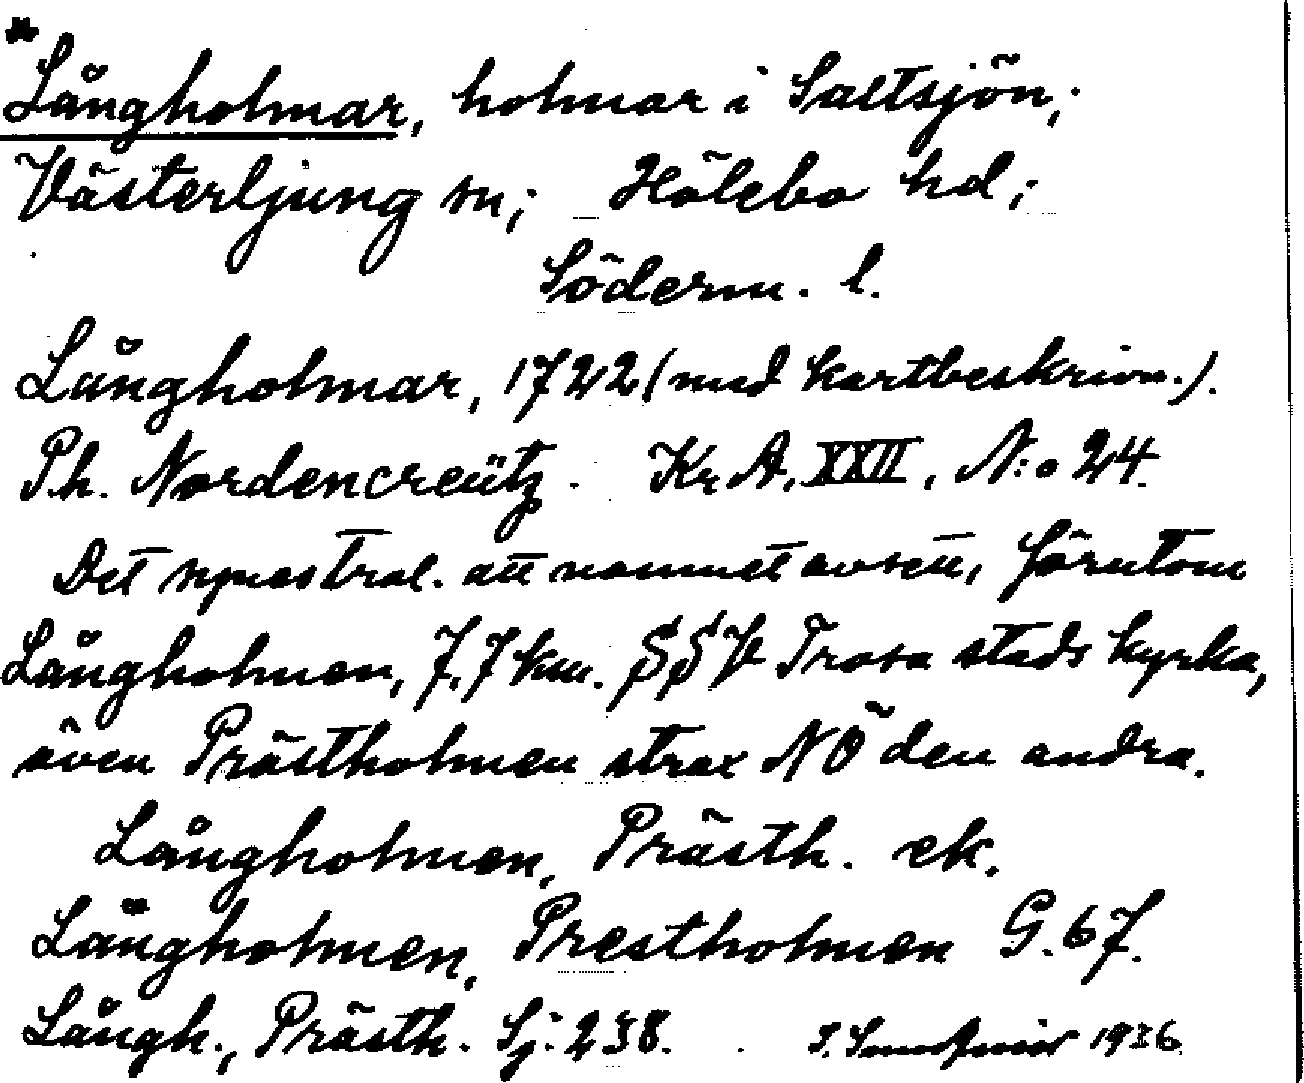 * Långholmar, holmar i Saltsjön,;
Västerljung sn; Hölebo hd;
Söderm. l.
Långholmar, 1722 (med kartbeskrivn.).
Ph. Nordencreütz. Kr A, XXII, N:o 24.
Det att namnet avsett, förutom
Långholmen, 7,7 km. SSV Trosa stads kyrka,
även Prästholmen strax NÖ den andra.
Långholmen, Prästh. ek.
Långholmen, Prestholmen G. 67.
Långh., Prästh. Sj: 238. 1936